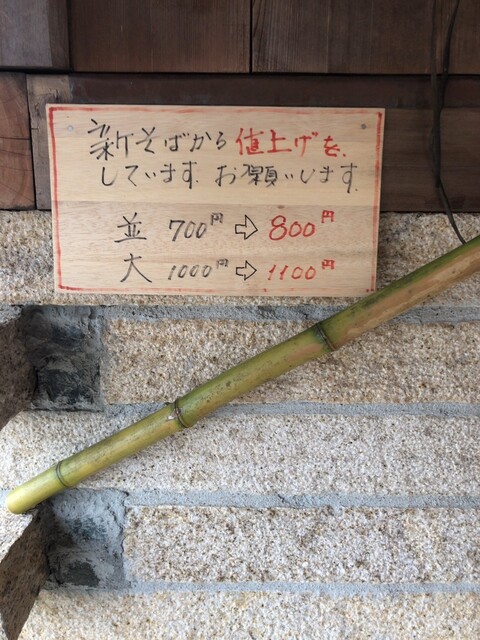 新そばから値上げを、
しています。お願いします。
並 700円 ⇨ 800円
大 1000円 ⇨ 1100円